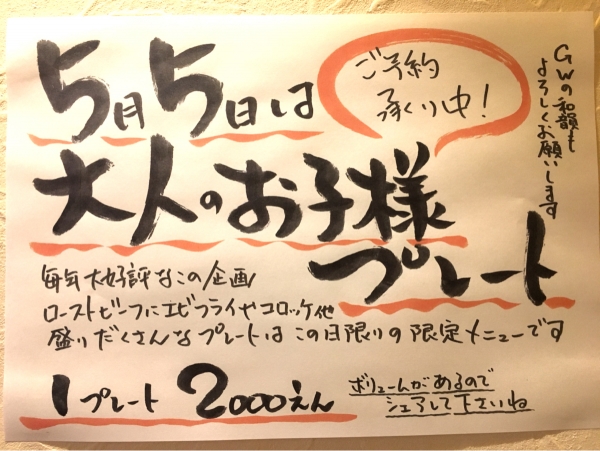 5月5日は
ご予約
承り中!
GWの和韻も
よろしくお願いします
大人のお子様
プレート
毎年大好評なこの企画
ローストビーフにエビフライやコロッケ他
盛りだくさんなプレートはこの日限りの限定メニューです
1プレート 2000えん
ボリュームがあるので
シェアして下さいね